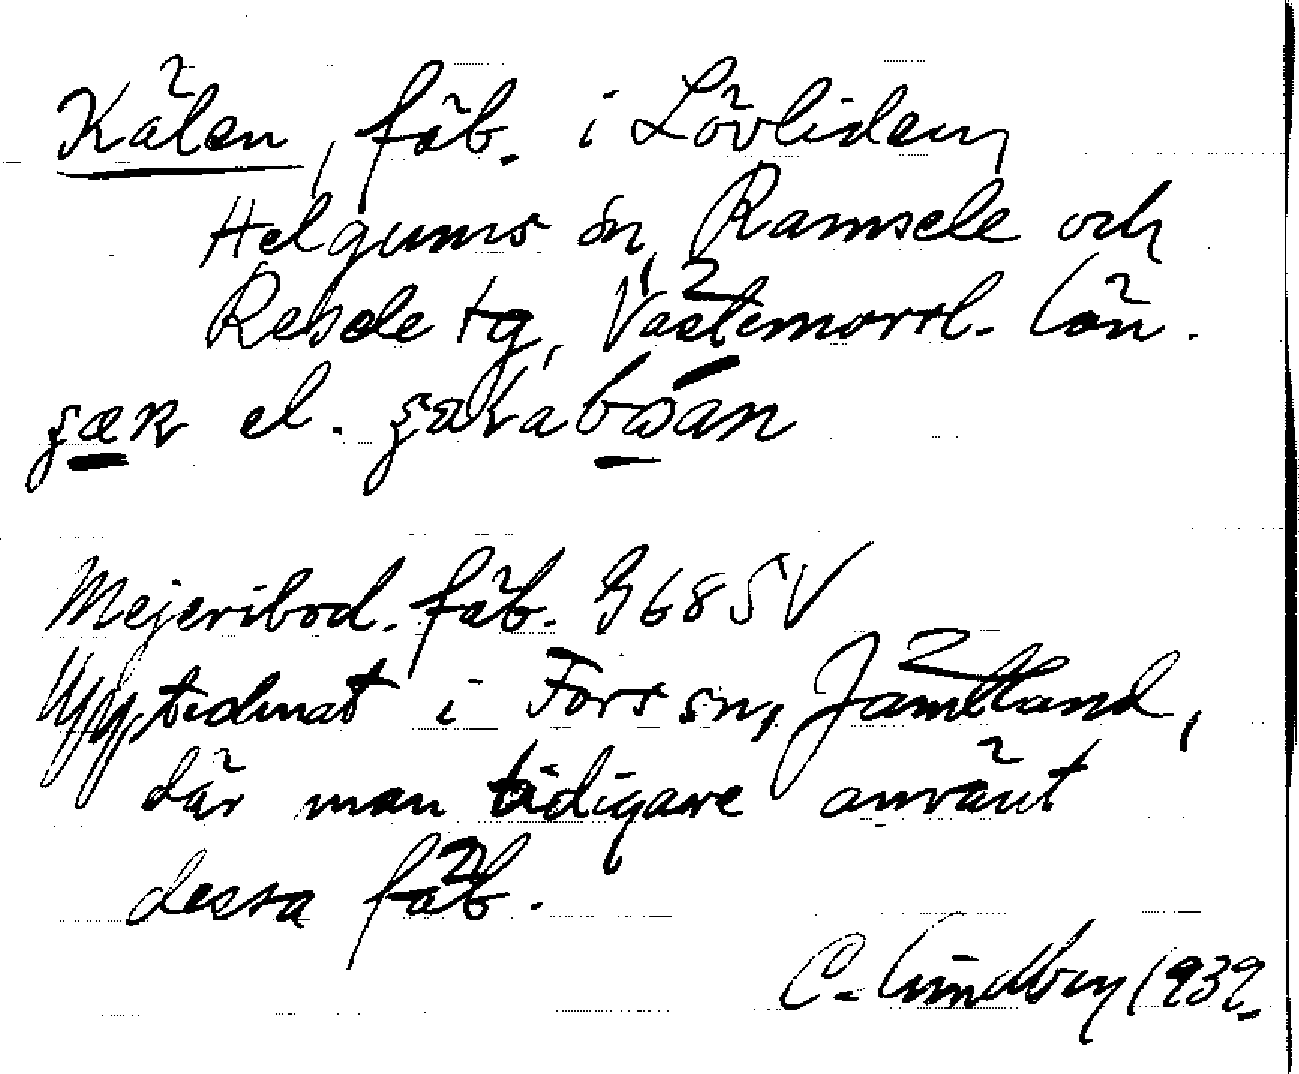 Kälen, fäb. i Lövliden,
Helgums sn, Ramsele och
Resele tg, Västernorrl. län.
el.
Mejeribod. fäb. G 68 5 V
Upptecknat i Fors sn, Jämtland,
där man tidigare använt
dessa fäb.
C. Lindberg 1939.